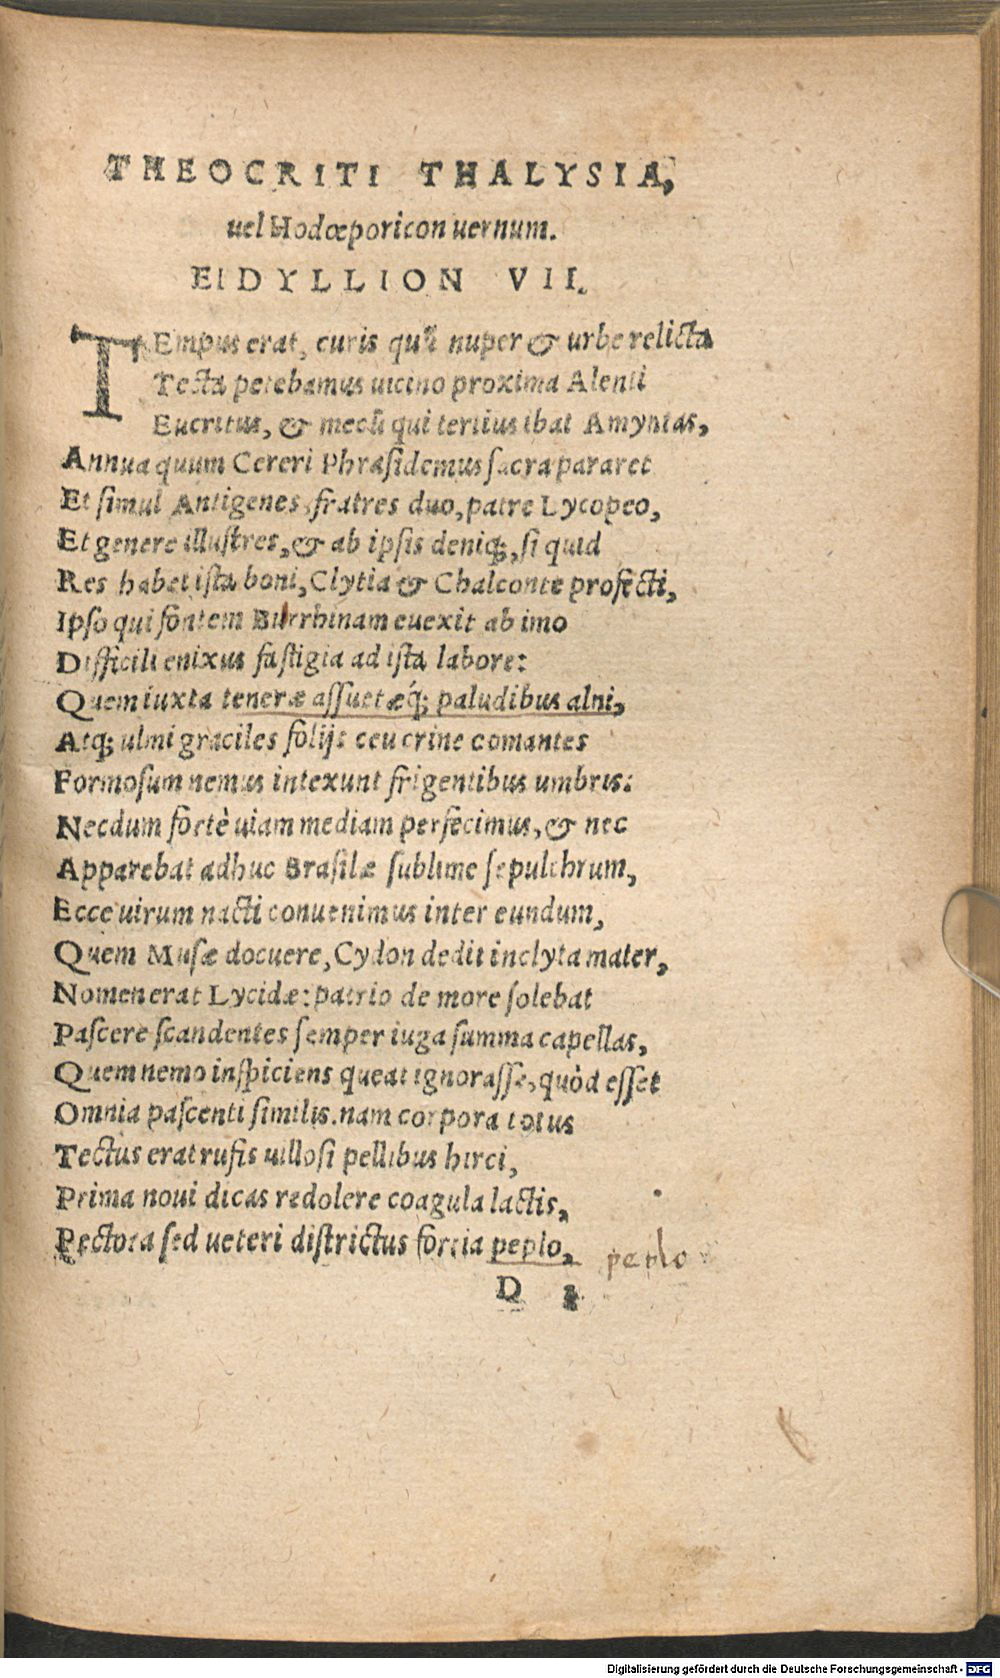 THEOCRITI THALYSIA,
uel Hodœporicon uernum.
EIDYLLION VII.
TEmpus erat, curis quũ nuper & urbe relicta
Tecta petebamus uicino proxima Alenti
Eucritus, & mecũ qui tertius ibat Amyntas,
Annua quum Cereri Phrasidemus sacra pararet
Et simul Antigenes, fratres duo, patre Lycopeo,
Et genere illustres, & ab ipsis deniq;, si quid
Res habet ista boni, Clytia & Chalconte profecti,
Ipso qui fontem Burrhinam euexit ab imo
Difficili enixus fastigia ad ista labore:
Quem iuxta teneræ assuetæq́; paludibus alni,
Atq; ulmi graciles folijs ceu crine comantes
Formosum nemus intexunt frigentibus umbris:
Necdum fortè uiam mediam perfecimus, & nec
Apparebat adhuc Brasilæ sublime sepulchrum,
Ecce uirum nacti conuenimus inter eundum,
Quem Musæ docuere, Cydon dedit inclyta mater,
Nomen erat Lycidæ: patrio de more solebat
Pascere scandentes semper iuga summa capellas,
Quem nemo inspiciens queat ignorasse, quòd esset
Omnia pascenti similis. nam corpora totus
Tectus erat rufis uillosi pellibus hirci,
Prima noui dicas redolere coagula lactis,
Pectora sed ueteri districtus fortia peplo, peplo
D
Digitalisierung gefördert durch die Deutsche Forschungsgemeinschaft - DFG